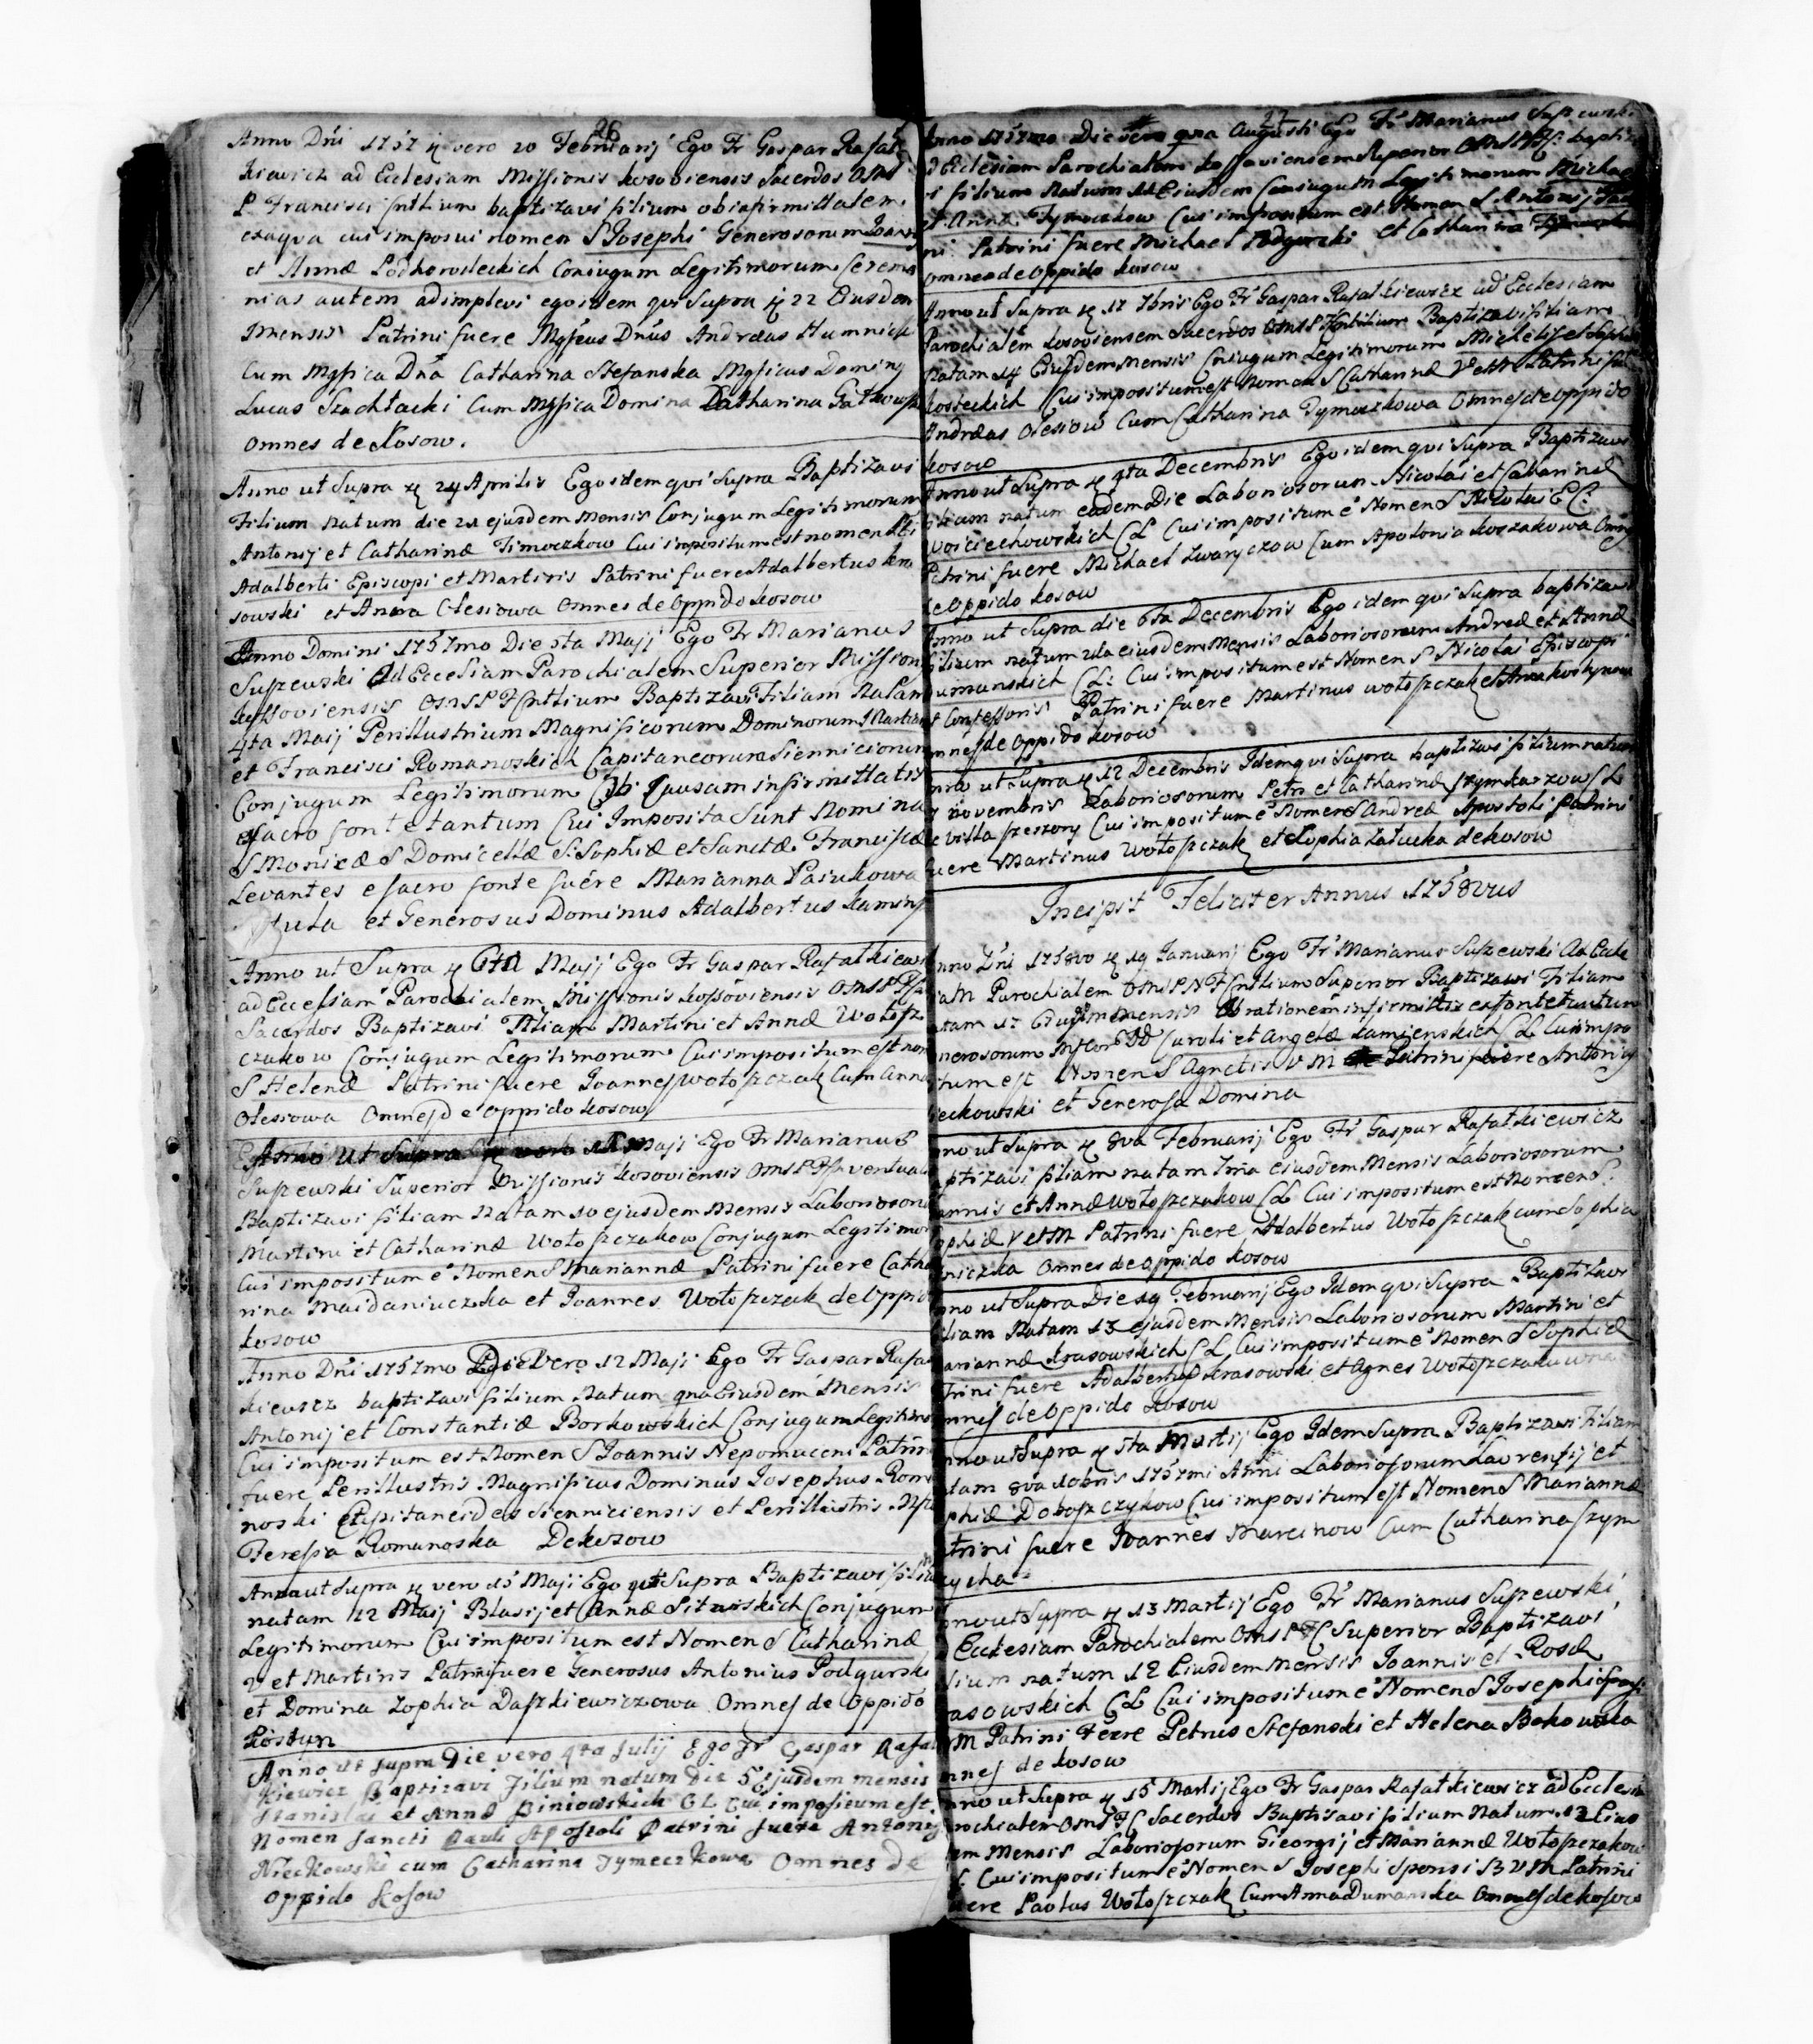 26
Anno Dńi 1757 ꝗ vero 20 Februarij Ego Fr Gaspar Rafał
kiewicz ad Ecclesiam Missionis kosoviensis Sacerdos
P Francisci baptizavi filium ob infirmittatem
ex aqva cui imposui nomen S Josephi Generosorum
et Annæ Podhorodeckich Conjugum Legitimorum Cerem
nias autem adimplevi ego idem qvi Supra ꝗ 22 Eiusdem
Mensis Patrini fuere Dńus Andræas Humnicki
Cum Dńa Catharina Stefanska Dominus
Lucas Szachłacki Cum Domina Catharina
Omnes de Kosow.
Anno ut Supra ꝗ 24 Aprilis Ego idem qvi Supra Baptizavi
Filium Natum die 21 ejusdem Mensis Conjugum Legitimorum
Antonij et Catharinæ Timoczkow Cui impositum est nomen
Adalberti Episcopi et Martiris Patrini fuere Adalbertus
sowski et Anna Olesiowa Omnes de Oppido kosow
Anno Domini 1757mo Die 5ta Maji Ego Fr Marianus
Suszewski Ad Ecclesiam Parochialem Superior Mission
Baptizavi Filiam Natam
4ta Maij Perillustrium Magnificorum Dominorum
et Francisci Romanoskich Capitaneorum
Conjugum Legitimorum Ob Causam infirmittatis
e sacro fonte tantum Cui Imposita Sunt Nomina
S Monicæ S Domicellæ S: Sophiæ et Sanctæ Franciscæ
Levantes e sacro fonte fuére Marianna Pasiukowa
et Generosus Dominus Adalbertus
Anno ut Supra ꝗ 6ta Maji Ego Fr Gaspar Rafałkiewi
ad Ecclesiam Parochialem Missionis kossoviensis
Sacerdos Baptizavi Filiam Martini et Annæ Wołosz
czakow Conjugum Legitimorum Cui impositum est nom
S Helenæ Patrini fuere Joannes Wołoszczak Cum Anna
Olesiowa Omnes de Oppido kosow
Anno Ut Supra Maji Ego Fr Marianus
Suszewski Superior Missionis kosoviensis
Baptizavi filiam Natam 10 ejusdem Mensis Laborioso
Martini et Catharinæ Wołoszczakow Conjugum Legitimor
Cui impositum e Nomen S Mariannæ Patrini fuere Catha
rina Maidaniuczka et Joannes Wołoszczak de Oppido
kosow
Anno Dńi 1757mo Die Vero 12 Maji Ego Fr Gaspar Rafał
kiewicz baptizavi filium Natum 9na Eiusdem Mensis
Antonij et Constantiæ Borkowskich Conjugum Legitimo
Cui impositum est Nomen S Joannis Nepomuceni Patrini
fuere Perillustris Magnificus Dominus Josephus Roma
noski Capitaneides Sienniciensis et Perillustris
Teressia Romanoska De kosow
Anno ut Supra ꝗ vero 15 Maji Ego qvi Supra Baptizavi filia
natam 12 Maij Blasij et Annæ Conjugum
Legitimorum Cui impositum est Nomen S Catharinæ
V et Martiris Patrini fuere Generosus Antonius Podgurski
et Domina Zophia Daszkiewiczowa Omnes de Oppido
Anno ut supra Die vero 9ta Julij Ego Fr Gaspar Rafał
kiewicz Baptizavi Filium natum Die 5 Ejusdem mensis
Stanislai et Annæ Biniowskich CL Cui impositum est
Nomen Sancti Pauli Apostoli Patrini fuere Antonij
Nieckowski cum Catharina Tymeczkowa Omnes de
Oppido kosow
27
Anno 1757mo Die vero 9na Augusti Ego Fr Marianus Suszewski
d Ecclesiam Parochialem kossoviensem Superior baptiz
i filium Natum Eiusdem Conjugum Legitimorum Michae
et Annæ Tymoczkow Cui impositum est Nomen S Antonij
ni Patrini fuere Michael Podgurski et Catharina
Omnes de Oppido kosow
Anno ut Supra ꝗ 17 7bris Ego Fr Gaspar Rafałkiewicz ad Ecclesiam
Parochialem kosoviensem Sacerdos Baptizavi filiam
Natam 14 Eiusdem Mensis Conjugum Legitimorum Michælis et
Cui impositum est Nomen S Catharinæ V et M Patrini fue
Andræas Olesiow Cum Catharina Tymoczkowa Omnes de Oppido
kosow
Anno ut Supra ꝗ 9ta Decembris Ego idem qvi Supra Baptizavi
filium natum eadem Die Laboriosorum Nicolai et Catharinæ
Woiciechowskich CL Cui impositum e Nomen S Nicolai
Patrini fuere Michael Zwaryczow Cum Apolonia koszakowa Omnes
de Oppido kosow
Anno ut Supra die 6ta Decembris Ego idem qvi Supra baptizavi
filium natum eiusdem Mensis Laboriosorum Andreæ et Annæ
umanskich CL: Cui impositum est Nomen S Nicolai Episcopi
et Confessoris Patrini fuere Martinus Wołoszczak et Anna
mnes de Oppido kosow
nno ut Supra ꝗ 12 Decembris Idem qvi Supra baptizavi filium natum
novembris Laboriosorum Petri et Catharinæ Szymkarzow CL
e villa Cui impositum e Nomen S Andreæ Apostoli Patrini
fuere Martinus Wołoszczak et Zophia de kosow
Incipit Feliciter Annus 1758vus
nno Dńi 1758vo ꝗ 19 Januarij Ego Fr Marianus Suszewski Ad Eccle
iam Parochialem Superior Baptizavi Filiam
atam 17 Ejusdem Mensis Ob rationem infirmittis ex fonte tantum
nerosorum Caroli et Angelæ kamienskich CL Cui impo
itum est Nomen S Agnetis V M Patrini fuere Antonij
ieckowski et Generosa Domina
nno ut Supra ꝗ 8va Februarij Ego Fr Gaspar Rafałkiewicz
aptizavi filiam natam 7ma eiusdem Mensis Laboriosorum
oannis et Annæ Wołoszczakow CL Cui impositum est Nomen S:
ophiæ V et M Patrini fuere Adalbertus Wołoszczak cum Sophia
Omnes de Oppido kosow
nno ut Supra Die 19 Februarij Ego Idem qvi Supra Baptizavi
iliam Natam 13 ejusdem Mensis Laboriosorum Martini et
ariannæ krasowskich CL Cui impositum e Nomen S Sophiæ
trini fuere Adalbertus krasowski et Agnes
mnes de Oppido kosow
nno ut Supra ꝗ 5ta Martij Ego Idem Supra Baptizavi Filiam
atam 8va Xobris 1757mi Anni Laboriosorum Laurentij et
phiæ Doboszczykow Cui impositum est Nomen S Mariannæ
atrini fuere Joannes Marcinow Cum Catharina Szym
nno ut Supra ꝗ 13 Martij Ego Fr Marianus Suszewski
d Ecclesiam Parochialem Superior Baptizavi
ilium natum 12 Eiusdem Mensis Joannis et Rosæ
rasowskich CL Cui impositum e Nomen S Josephi
M Patrini fuere Petrus Stefanski et Helena Bokowska
mnes de kosow
nno ut Supra ꝗ 15 Martij Ego Fr Gaspar Rafałkiewicz ad Ecclesi
rochialem Sacerdos Baptizavi filium Natum 12 Eius
em Mensis Laboriosorum Gieorgij et Mariannæ Wołoszczakow
Cui impositum e Nomen S Josephi Sponsi B V M Patrini
uere Paolus Wołoszczak Cum Anna Dumanska Omnes de kosow